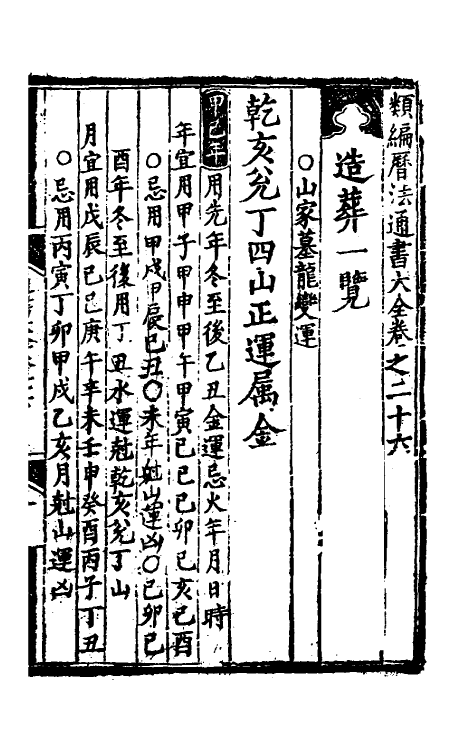 類編曆法通書大全卷之二十六
造葬一覽
○山家墓龍變運
乾亥兌丁四山正運属金
甲己年用先年冬至後乙丑金運忌火年月日時
年宜用甲子甲申甲午甲寅己巳己卯己亥己酉
○忌用甲戌甲辰己丑○未年尅山運凶○己卯己
酉年冬至後用丁丑水運尅乾亥兌丁山
月宜用戊辰己巳庚午辛未壬申癸酉丙子丁丑
○忌用丙寅丁卯甲戌乙亥月尅山運凶